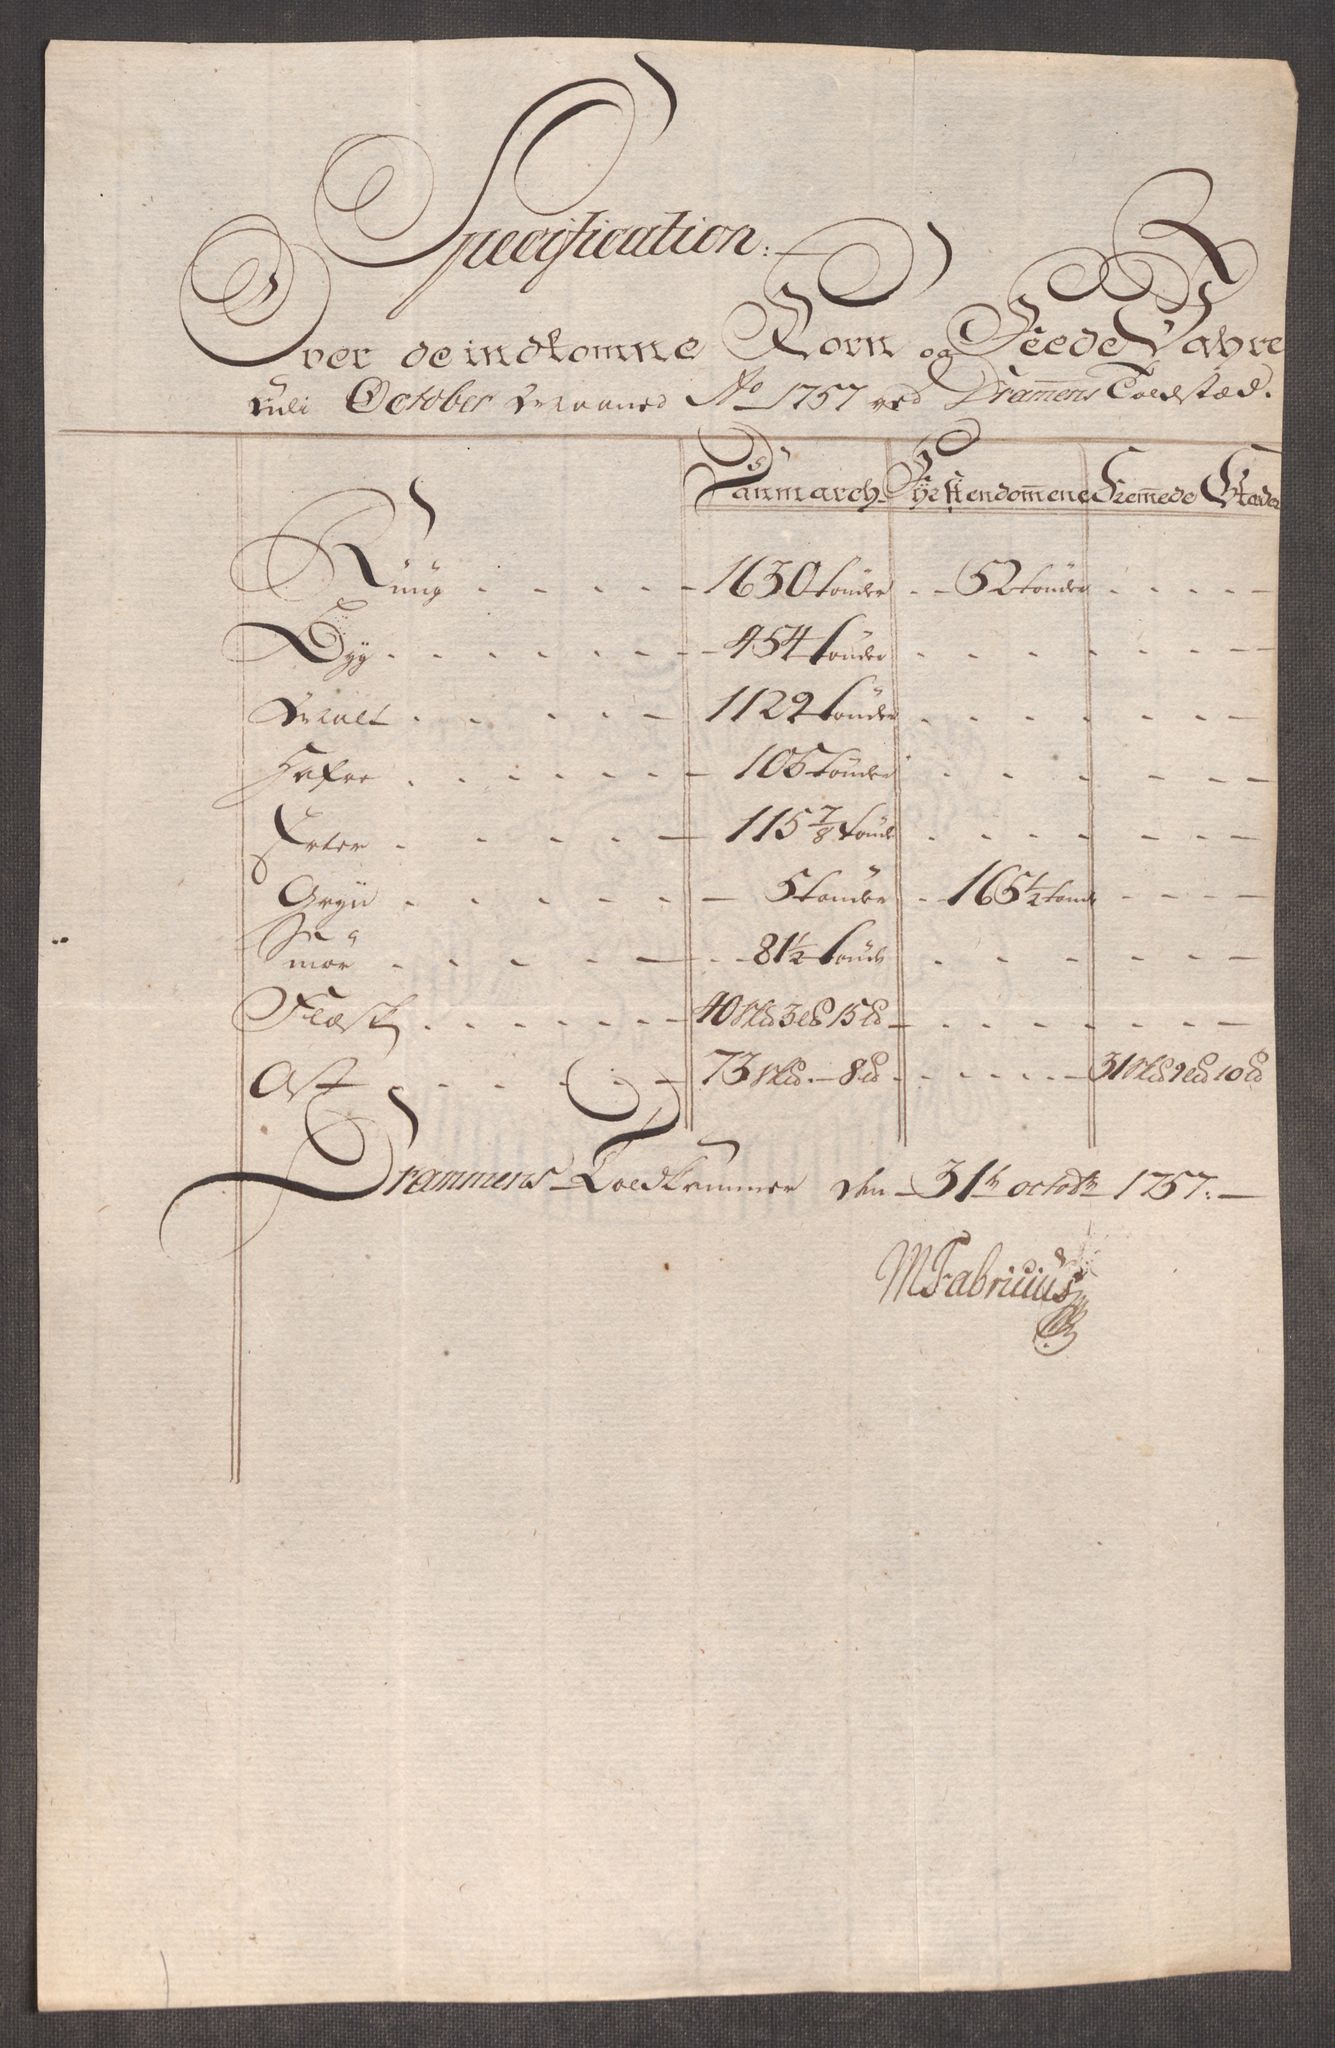 Specification
Over de indkomne Korn og Feede Vahre
udi October Maaned Ao 1757 ved Dram̄ens Toldstæd.
Danmarch Fÿrstendom̄ene Frem̄ede Stæder
Rüüg 1630 tönder 52 tönder
Bÿg 454 tönder
Malt 1122 tönder
Hafre 105 tönder
Erter 115 7/8 tönd
Grÿn 5 tönder 165 1/2 tönd
Smör 81 1/2 tönd
Flæsk 40 Skd 3 Ld 15 Pd
Ost 73 Skd - 8 Pd 31 Skd 9 Ld 10 Pd
Drammens Toldkammer den 31te octobr 1757.
MFabricius